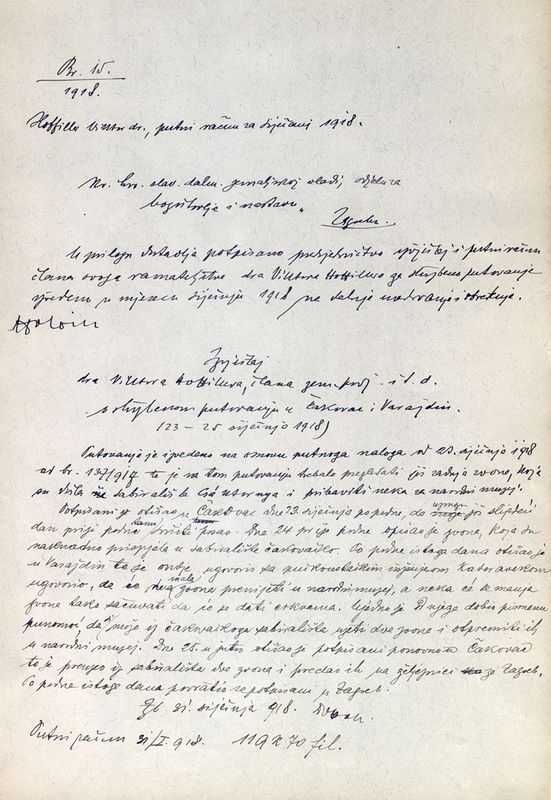 Br. 15.
1918.
Hoffilla Viktor dr., putni račun za siječanj 1918.
Kr. hrv. slav. dalm. zemaljskoj vladi, odjelu za
bogoštovlje i nastavu
Zagreb.
U prilogu dostavlja potpisano predsjedništvo izvještaj i putni račun
člana ovoga ravnateljstva dra Viktora Hoffillera za službeno putovanje
izvedeno u mjesecu siječnju 1918 na daljnje uredovanje i
Izvještaj
dra Viktora Hoffillera, člana zem. povj. i t. d.
o službenom putovanju u Čakovac i Varaždin.
(23 – 25 siječnja 1918)
Putovanje je izvedeno na osnovu putnoga naloga od 23. siječnja 1918
od br. 137/917 te je na tom putovanju trebalo pregledati još zadnja zvona, koja
su došla na sabiralište i pribaviti neka za narodni muzej.
Potpisani je otišao u Čakovac dne 23 siječnja po podne, da uzmogne još slijedeći
dan prije podne tamo svršiti posao. Dne 24 prije podne opisao je zvona, koja su
naknadno prispjela u sabiralište čakovačko. Po podne istoga dana otišao je
u Varaždin te se ondje ugovorio sa
ugovorio, da će mala zvona prenijeti u narodni muzej, a neka će se manja
zvona tako sačuvati da će se dati crkvama. Ujedno je od njega dobio pismenu
punomoć da može iz čakovačkoga sabirališta uzeti dva zvona i otpremiti ih
u narodni muzej. Dne 25. u jutro otišao je potpisani ponovno u Čakovac
te je preuzeo iz sabirališta dva zvona i predao ih na željeznici za Zagreb.
Po podne istoga dana povratio se potpisani u Zagreb.
Zgb 31. siječnja 918.
Putni račun 31/I 918. 119 K 70 fil.